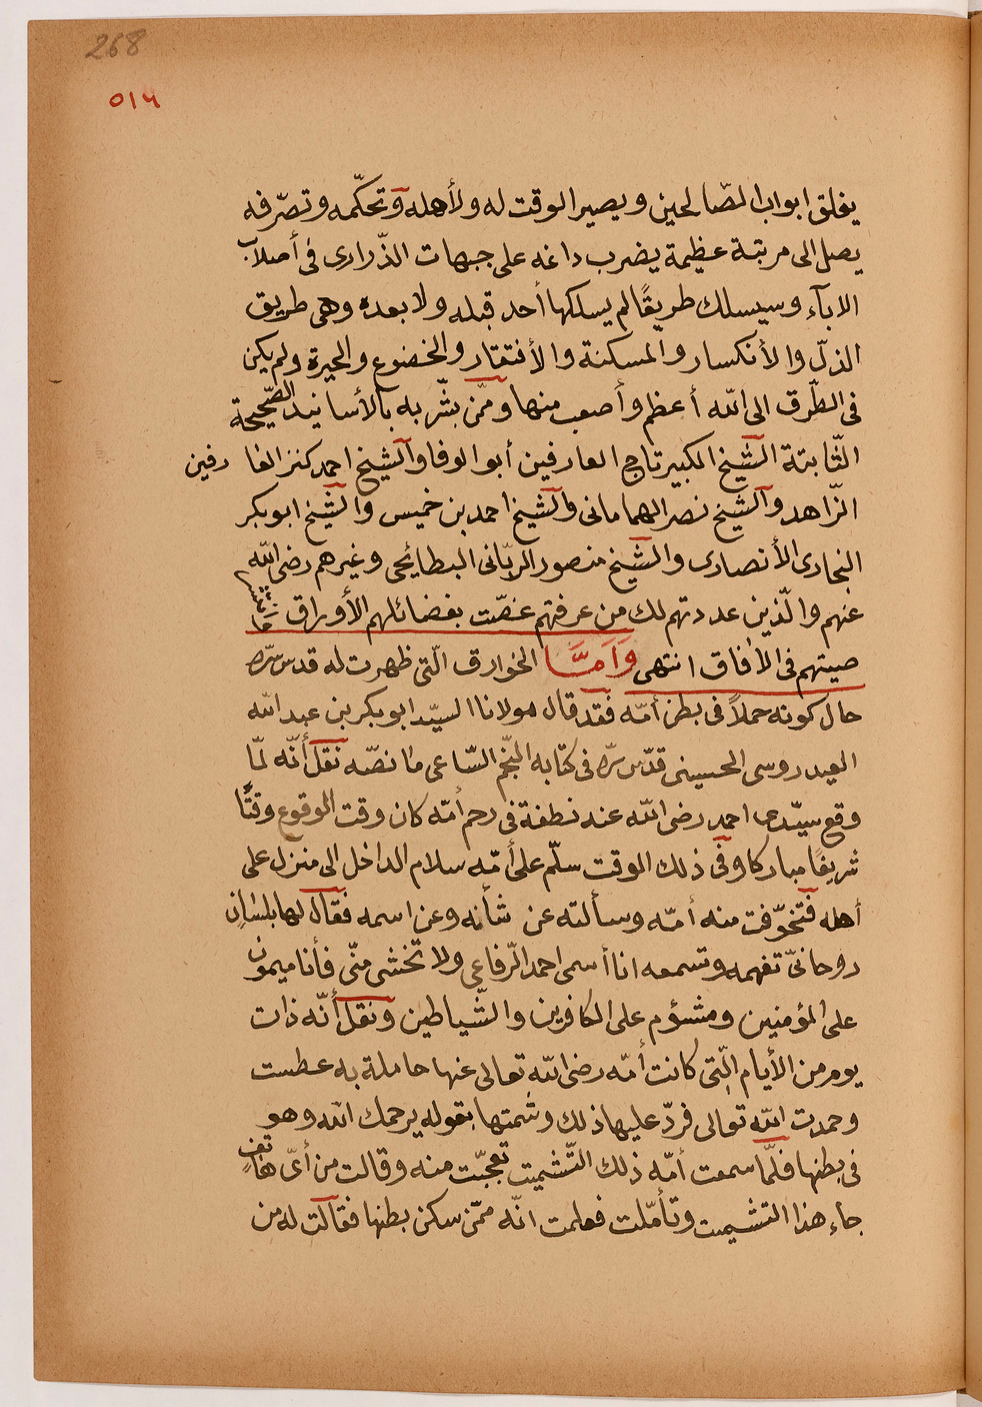 268
٥١٦
يغلق ابواب الصّالحين ويصير الوقت له ولأهله وتحكّمه وتصرّفه
يصل الى مرتبة عظيمة يضرب داغه على جبهات الذّرارى فى أصلاب
الابآء وسيسلك طريقًا لم يسلكها أحد قبله ولا بعده وهى طريق
الذلّ والأنكسار والمسكنة والأفتقار والخضوع والحيرة ولم يكن
فى الطّرق الى الله أعظم وأصعب منها وممّن بشّر به بالأسانيد الصّحيحة
الثّابتة الشّيخ الكبير تاج العارفين أبو الوفا والشّيخ احمد كنز العارفين
الزّاهد والشّيخ نصر الهمامانى والشّيخ احمد بن خميس والشّيخ ابو بكر
النجارى الأنصارى والشّيخ منصور الربّانى البطائحى وغيرهم رضى الله
عنهم والّذين عددتهم لك من عرفتهم غصّت بفضائلهم الأوراق
صيتهم فى الآفاق انتهى وَاَمَّا الخوارق الّتى ظهرت له قدس سرّه
حال كونه حملاً فى بطن أمّه فقد قال مولانا السيّد ابو بكر بن عبد الله
العيدروسى الحسينى قدّس سرّه فى كتابه النّجم السّاعى ما نصّه نقل أنّه لمّا
وقع سيّدى احمد رضى الله عنه نطفة فى رحم أمّه كان وقت الوقوع وقتًا
شريفًا مباركا وفى ذلك الوقت سلّم على أمّه سلام الداخل الى منزل على
أهله فتخوّفت منه أمّه وسألته عن شأنه وعن اسمه فقال لها بلسان
روحانىّ تفهمه وتسمعه انا أسمى احمد الرّفاعى ولا تخشى منّى فأنا ميمون
على المؤمنين ومشؤم على الكافرين والشّياطين ونقل أنّه ذات
يوم من الأيام الّتى كانت أمّه رضى الله تعالى عنها حاملة به عطست
وحمدت الله تعالى فردّ عليها ذلك وشمتها بقوله يرحمك الله وهو
فى بطنها فلمّا سمعت أمّه ذلك التّشميت تعجبّت منه وقالت من أىّ هاتف
جاء هذا التشميت وتأمّلت فعلمت انّه ممّن سكن بطنها فقالت له من